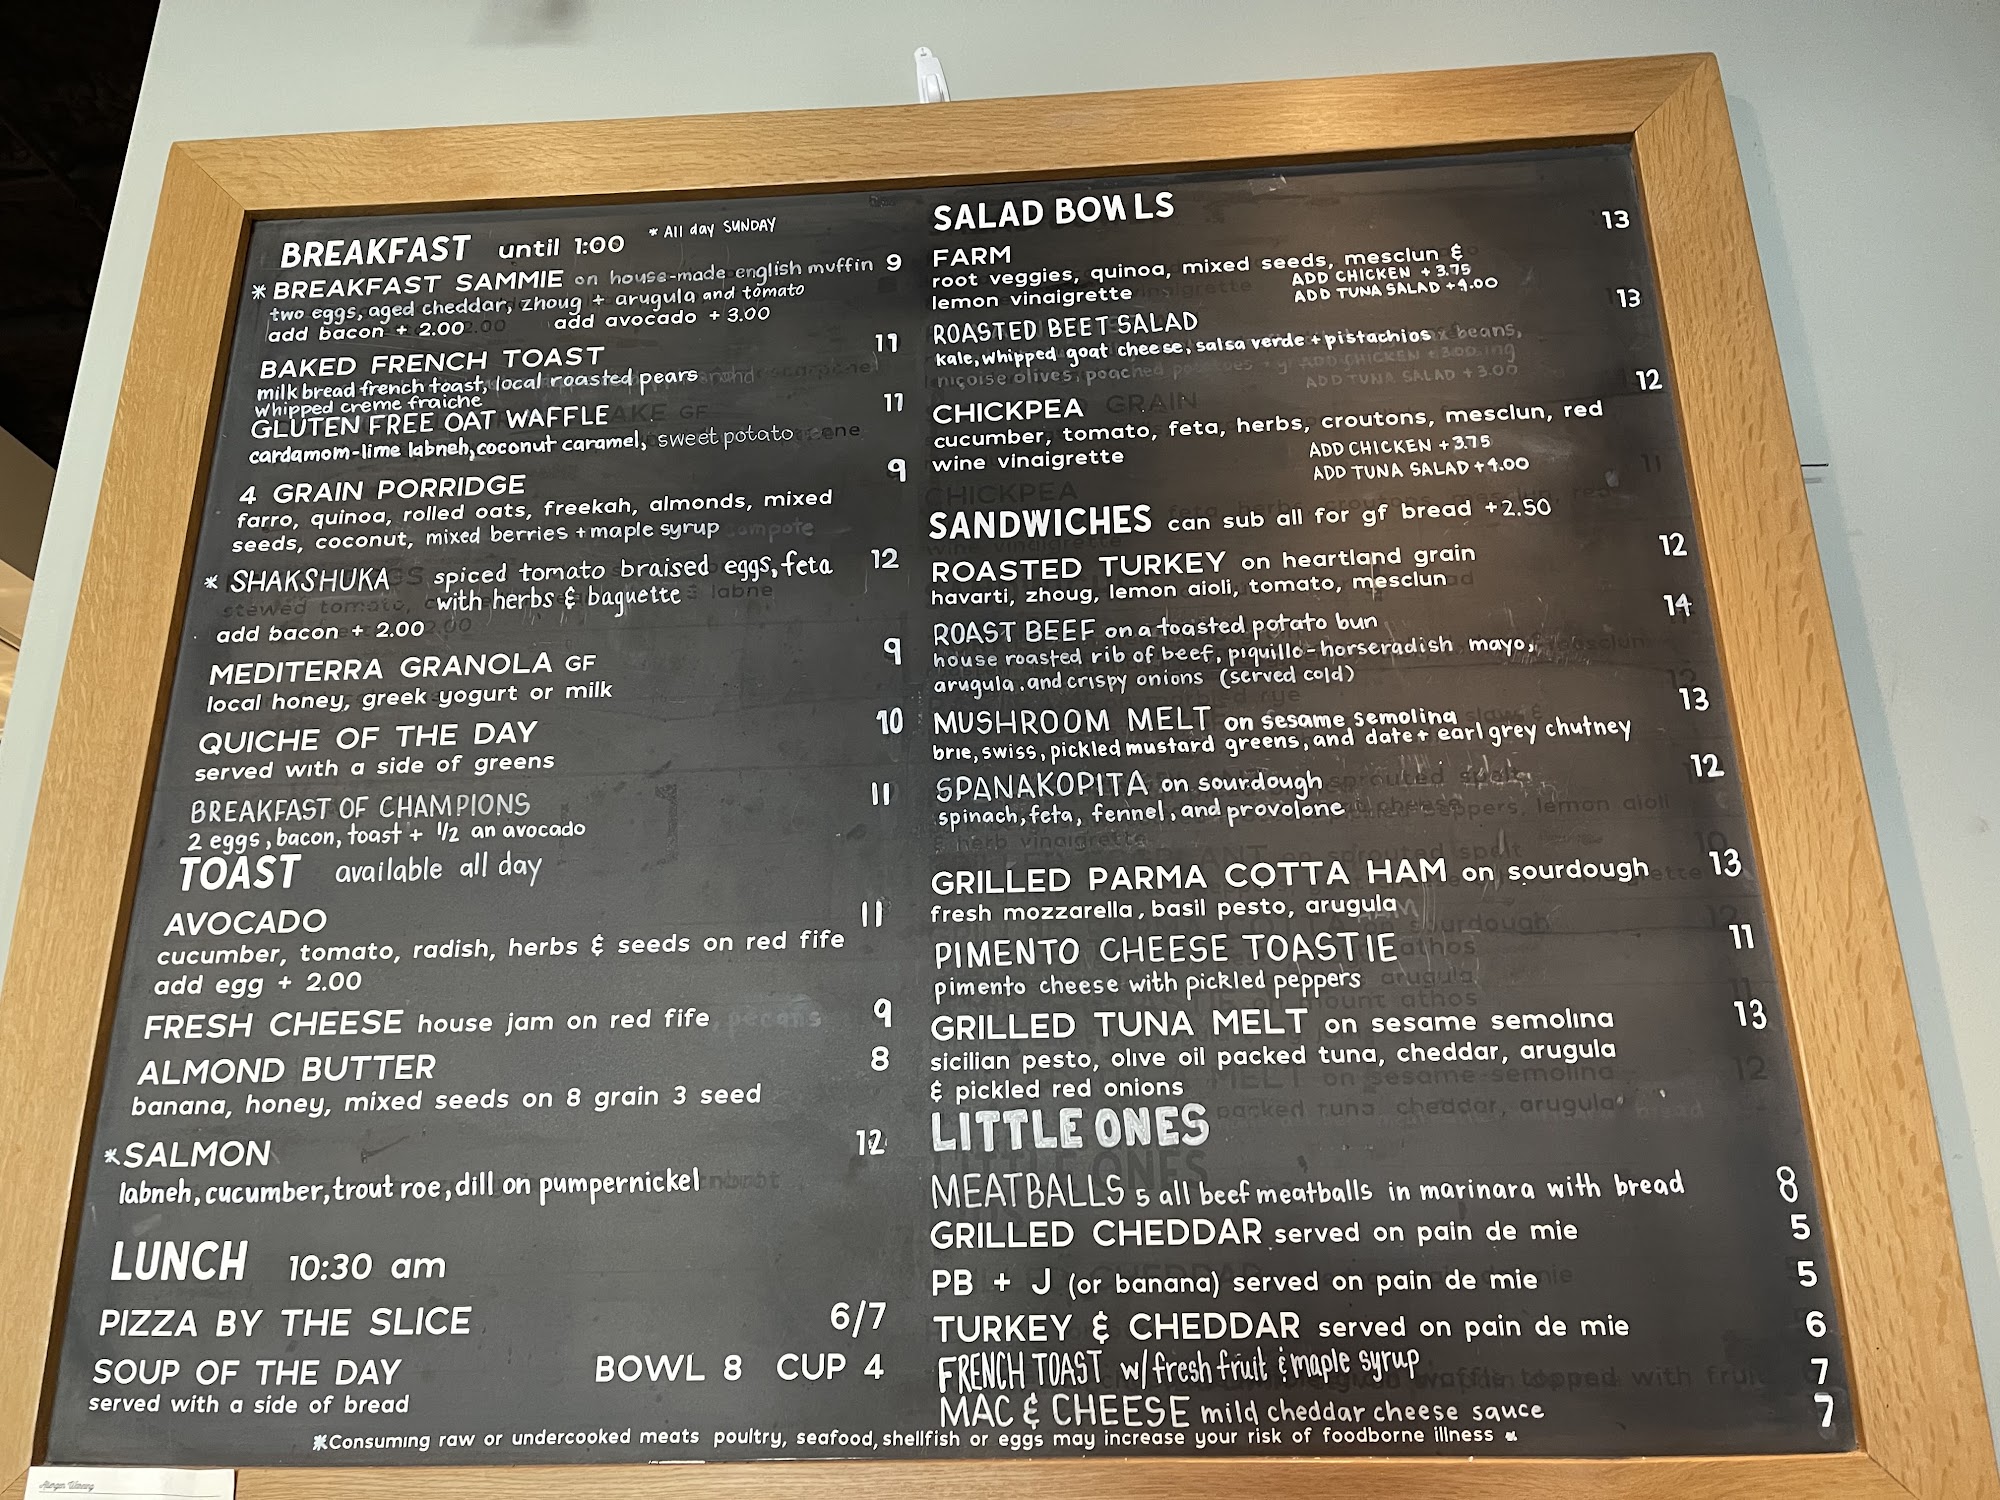 BREAKFAST until 1:00 * All day SUNDAY
* BREAKFAST SAMMIE on house-made english muffin 9
two eggs, aged cheddar, zhoug + arugula and tomato
add bacon + 2.00 add avocado + 3.00
BAKED FRENCH TOAST 11
milk bread french toast, local roasted pears
whipped creme fraiche
GLUTEN FREE OAT WAFFLE 11
cardamom-lime labneh, coconut caramel, sweet potato
4 GRAIN PORRIDGE 9
farro, quinoa, rolled oats, freekah, almonds, mixed
seeds, coconut, mixed berries + maple syrup
* SHAKSHUKA spiced tomato braised eggs, feta 12
with herbs & baguette
add bacon + 2.00
MEDITERRA GRANOLA GF 9
local honey, greek yogurt or milk
QUICHE OF THE DAY 10
served with a side of greens
BREAKFAST OF CHAMPIONS 11
2 eggs, bacon, toast + 1/2 an avocado
TOAST available all day
AVOCADO 11
cucumber, tomato, radish, herbs & seeds on red fife
add egg + 2.00
FRESH CHEESE house jam on red fife 9
ALMOND BUTTER 8
banana, honey, mixed seeds on 8 grain 3 seed
*SALMON 12
labneh, cucumber, trout roe, dill on pumpernickel
LUNCH 10:30 am
PIZZA BY THE SLICE 6/7
SOUP OF THE DAY BOWL 8 CUP 4
served with a side of bread
SALAD BOWLS
FARM 13
root veggies, quinoa, mixed seeds, mesclun &
lemon vinaigrette
ADD CHICKEN + 3.75
ADD TUNA SALAD + 4.00
ROASTED BEET SALAD 13
kale, whipped goat cheese, salsa verde + pistachios
CHICKPEA 12
cucumber, tomato, feta, herbs, croutons, mesclun, red
wine vinaigrette
ADD CHICKEN + 3.75
ADD TUNA SALAD + 4.00
SANDWICHES can sub all for gf bread + 2.50
ROASTED TURKEY on heartland grain 12
havarti, zhoug, lemon aioli, tomato, mesclun
ROAST BEEF on a toasted potato bun 14
house roasted rib of beef, piquillo-horseradish mayo,
arugula, and crispy onions (served cold)
MUSHROOM MELT on sesame semolina 13
brie, swiss, pickled mustard greens, and date + earl grey chutney
SPANAKOPITA on sourdough 12
spinach, feta, fennel, and provolone
GRILLED PARMA COTTA HAM on sourdough 13
fresh mozzarella, basil pesto, arugula
PIMENTO CHEESE TOASTIE 11
pimento cheese with pickled peppers
GRILLED TUNA MELT on sesame semolina 13
sicilian pesto, olive oil packed tuna, cheddar, arugula
& pickled red onions
LITTLE ONES
MEATBALLS 5 all beef meatballs in marinara with bread 8
GRILLED CHEDDAR served on pain de mie 5
PB + J (or banana) served on pain de mie 5
TURKEY & CHEDDAR served on pain de mie 6
FRENCH TOAST w/ fresh fruit & maple syrup 7
MAC & CHEESE mild cheddar cheese sauce 7
*Consuming raw or undercooked meats poultry, seafood, shellfish or eggs may increase your risk of foodborne illness